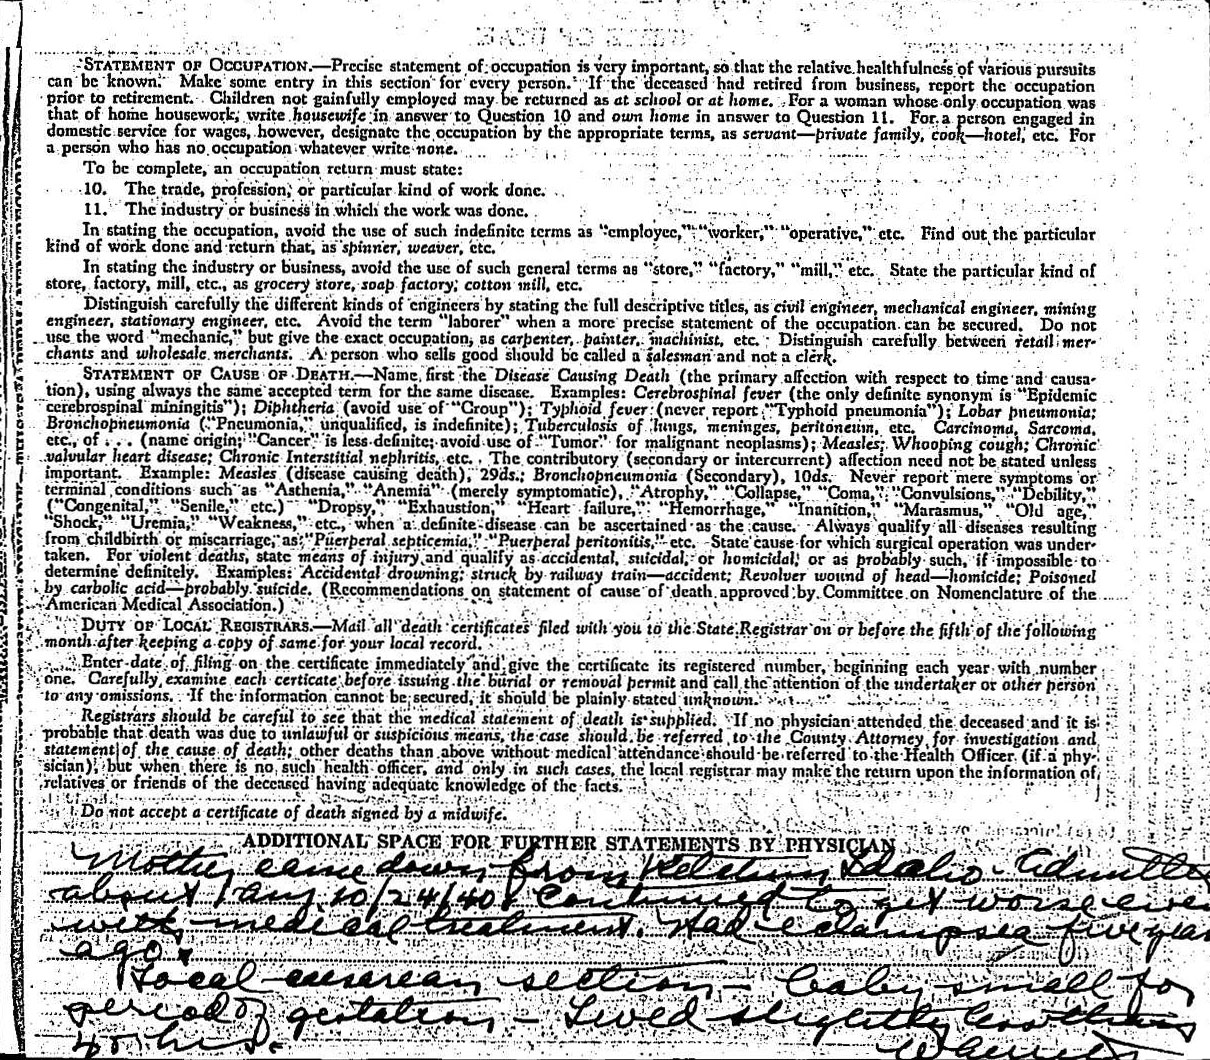 STATEMENT OF OCCUPATION.—Precise statement of occupation is very important, so that the relative healthfulness of various pursuits
can be known. Make some entry in this section for every person. If the deceased had retired from business, report the occupation
prior to retirement. Children not gainfully employed may be returned as at school or at home. For a woman whose only occupation was
that of home housework, write housewife in answer to Question 10 and own home in answer to Question 11. For a person engaged in
domestic service for wages, however, designate the occupation by the appropriate terms, as servant—private family, cook—hotel, etc. For
a person who has no occupation whatever write none.
To be complete, an occupation return must state:
10. The trade, profession, or particular kind of work done.
11. The industry or business in which the work was done.
In stating the occupation, avoid the use of such indefinite terms as "employee," "worker," "operative," etc. Find out the particular
kind of work done and return that, as spinner, weaver, etc.
In stating the industry or business, avoid the use of such general terms as "store," "factory," "mill," etc. State the particular kind of
store, factory, mill, etc., as grocery store, soap factory, cotton mill, etc.
Distinguish carefully the different kinds of engineers by stating the full descriptive titles, as civil engineer, mechanical engineer, mining
engineer, stationary engineer, etc. Avoid the term "laborer" when a more precise statement of the occupation can be secured. Do not
use the word "mechanic," but give the exact occupation, as carpenter, painter, machinist, etc. Distinguish carefully between retail mer-
chants and wholesale merchants. A person who sells good should be called a salesman and not a clerk.
STATEMENT OF CAUSE OF DEATH.—Name, first the Disease Causing Death (the primary affection with respect to time and causa-
tion), using always the same accepted term for the same disease. Examples: Cerebrospinal fever (the only definite synonym is "Epidemic
cerebrospinal miningitis"); Diphtheria (avoid use of "Croup"); Typhoid fever (never report "Typhoid pneumonia"); Lobar pneumonia;
Bronchopneumonia ("Pneumonia," unqualified, is indefinite); Tuberculosis of lungs, meninges, peritoneum, etc. Carcinoma, Sarcoma,
etc., of . . . (name origin; "Cancer" is less definite; avoid use of "Tumor" for malignant neoplasms); Measles; Whooping cough; Chronic
valvular heart disease; Chronic Interstitial nephritis, etc. The contributory (secondary or intercurrent) affection need not be stated unless
important. Example: Measles (disease causing death), 29ds.; Bronchopneumonia (Secondary), 10ds. Never report mere symptoms or
terminal conditions such as "Asthenia," "Anemia" (merely symptomatic), "Atrophy," "Collapse," "Coma," "Convulsions," "Debility,"
("Congenital," "Senile," etc.) "Dropsy," "Exhaustion," "Heart failure," "Hemorrhage," "Inanition," "Marasmus," "Old age,"
"Shock," "Uremia," "Weakness," etc., when a definite disease can be ascertained as the cause. Always qualify all diseases resulting
from childbirth or miscarriage, as "Puerperal septicemia," "Puerperal peritonitis," etc. State cause for which surgical operation was under-
taken. For violent deaths, state means of injury and qualify as accidental, suicidal, or homicidal; or as probably such, if impossible to
determine definitely. Examples: Accidental drowning; struck by railway train—accident; Revolver wound of head—homicide; Poisoned
by carbolic acid—probably suicide. (Recommendations on statement of cause of death approved by Committee on Nomenclature of the
American Medical Association.)
DUTY OF LOCAL REGISTRARS.—Mail all death certificates filed with you to the State Registrar on or before the fifth of the following
month after keeping a copy of same for your local record.
Enter date of filing on the certificate immediately and give the certificate its registered number, beginning each year with number
one. Carefully examine each certicate before issuing the burial or removal permit and call the attention of the undertaker or other person
to any omissions. If the information cannot be secured, it should be plainly stated unknown.
Registrars should be careful to see that the medical statement of death is supplied. If no physician attended the deceased and it is
probable that death was due to unlawful or suspicious means, the case should be referred to the County Attorney for investigation and
statement of the cause of death; other deaths than above without medical attendance should be referred to the Health Officer (if a phy-
sician), but when there is no such health officer, and only in such cases, the local registrar may make the return upon the information of
relatives or friends of the deceased having adequate knowledge of the facts.
Do not accept a certificate of death signed by a midwife.
ADDITIONAL SPACE FOR FURTHER STATEMENTS BY PHYSICIAN
Mother came down from Idaho. Admitted
about 10/24/40. Continued to get worse even
with medical treatment. Had eclampsea five years
ago.
Local cesarean section – baby small for
period of gestation – Lived slightly less than
hrs.